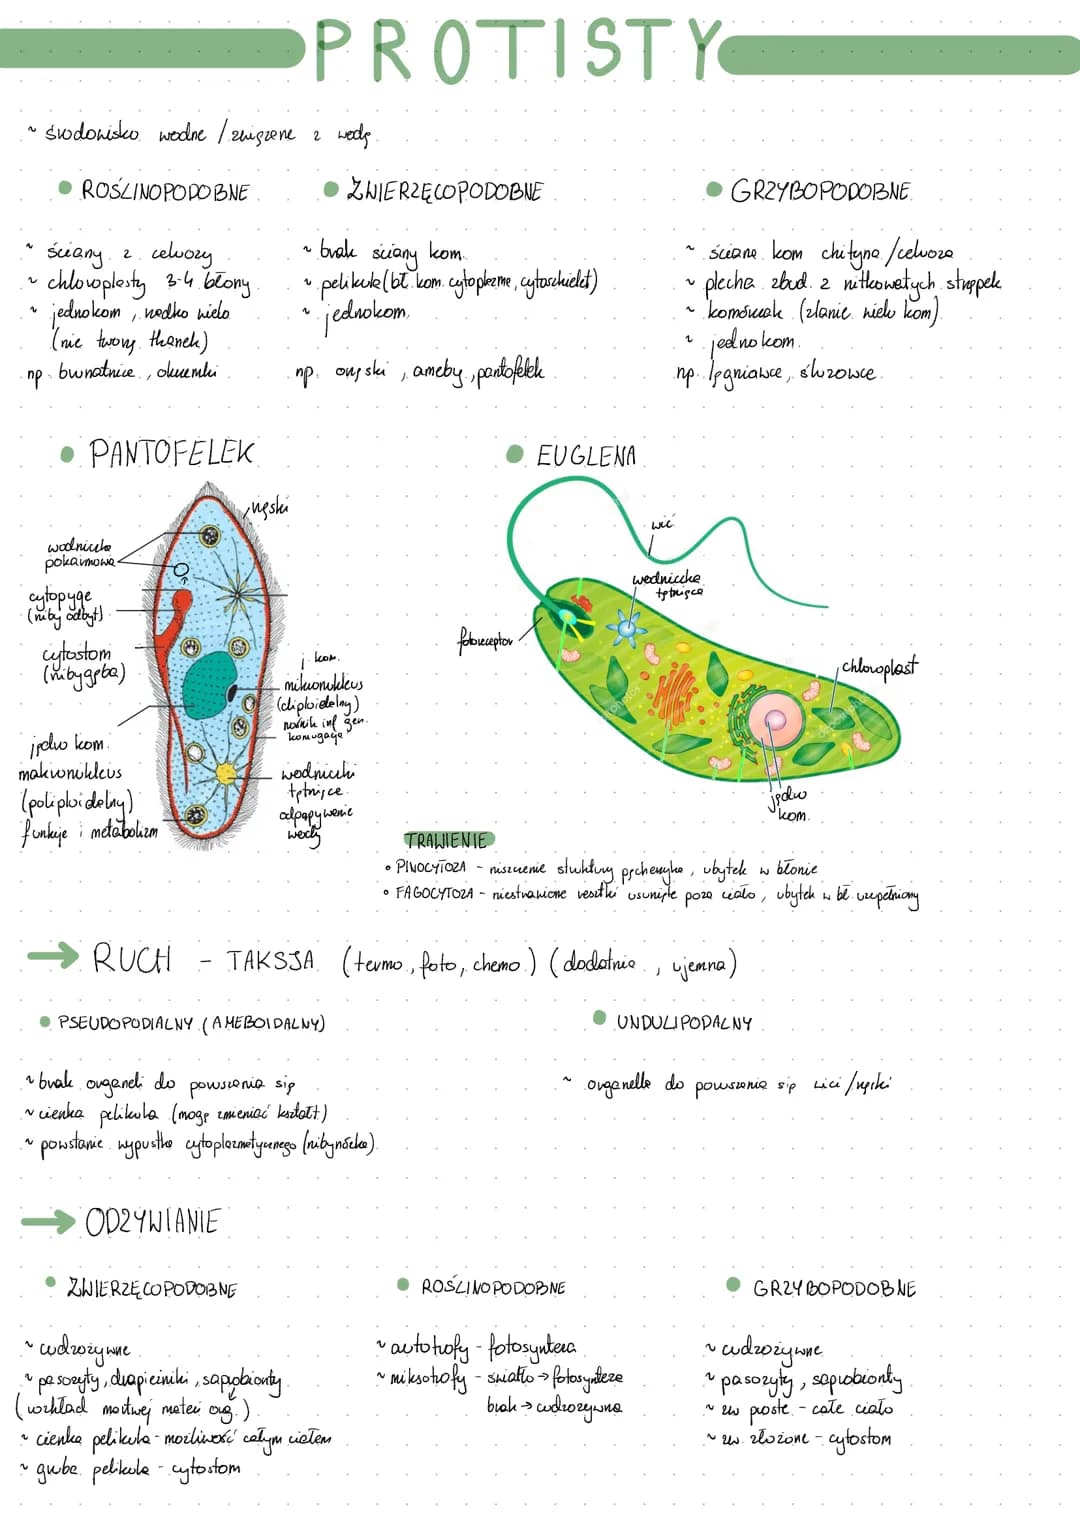 PROTISTY
~ środowisko wodne / związane z wodą
• ROŚLINOPODOBNE
~ ściany z celuozy
~ chloroplasty 3-4 błony
~ jednokom, rzadko wielo
(nie tworzą tkanek)
np. brunatnice, okrzemki
• ZWIERZĘCOPODOBNE
~ brak ściany kom.
~ pelikula (bł. kom. cytoplazma, cytoszkielet)
~ jednokom,
np. orzęski, ameby, pantofelek
• GRZYBOPODOBNE
~ ściana kom chityna / celuoza
~ plecha zbud. z nitkowatych strzępek
~ komórczak (zlanie wielu kom)
~ jednokom.
np. lęgniowce, śluzowce
• PANTOFELEK
rzęski
wodniczka
pokarmowa
cytopyge
(niby odbyt)
cytostom
(niby gęba)
jądro kom.
makronukleus
(poliploidalny)
funkcje i metabolizm
j. kom.
mikronukleus
(diploidalny)
nośnik inf gen.
koniugacja
wodniczki
tętniące
odpompywanie
wody
• EUGLENA
wić
wodniczka
tętniąca
fotoreceptor
chloroplast
jądro
kom.
TRAWIENIE
• PINOCYTOZA - niszczenie struktury pęcherzyka, ubytek w błonie
• FAGOCYTOZA - niestrawione resztki usunięte poza ciało, ubytek w bł. uzupełniony
→ RUCH - TAKSJA (termo, foto, chemo) (dodatnia, ujemna)
• PSEUDOPODIALNY (AMEBOIDALNY)
~ brak organelli do poruszania się
~ cienka pelikula (mogą zmieniać kształt)
~ powstanie wypustka cytoplazmatycznego (nibynóżka)
• UNDULIPODALNY
~ organelle do poruszania się wici / rzęski
→ ODŻYWIANIE
• ZWIERZĘCOPODOBNE
~ cudzożywne
~ pasożyty, drapieżniki, saprobionty
(rozkład martwej materii org.)
~ cienka pelikula - możliwość całym ciałem
~ gruba pelikula - cytostom
• ROŚLINOPODOBNE
~ autotrofy - fotosynteza
~ miksotrofy - światło → fotosynteza
brak → cudzożywna
• GRZYBOPODOBNE
~ cudzożywne
~ pasożyty, saprobionty
~ zw proste - całe ciało
~ zw. złożone - cytostom